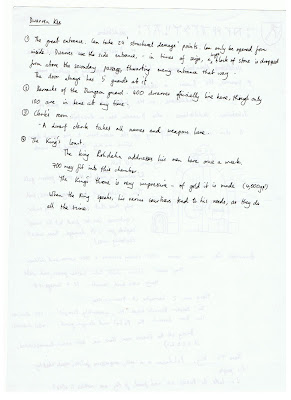 Dwarven Keep
① The great entrance. Can take 20 "structural damage" points. Can only be opened from
inside. Dwarves use the side entrance - in times of siege, a huge block of stone is dropped
from above the secondary passage, thwarting enemy entrance that way.
The door always has 5 guards at it.
② Barracks of the Dungeon guard. 600 dwarves officially live here, though only
180 are in here at any time.
③ Clerk's room
- A dwarf clerk takes all names and weapons here.
④ The King's Court.
The king Rohdahn addresses his men here once a week.
700 may fit into this chamber.
The King's throne is very impressive - of gold it is made
When the King speaks, his nerves tend to his needs, as they do
all the time.